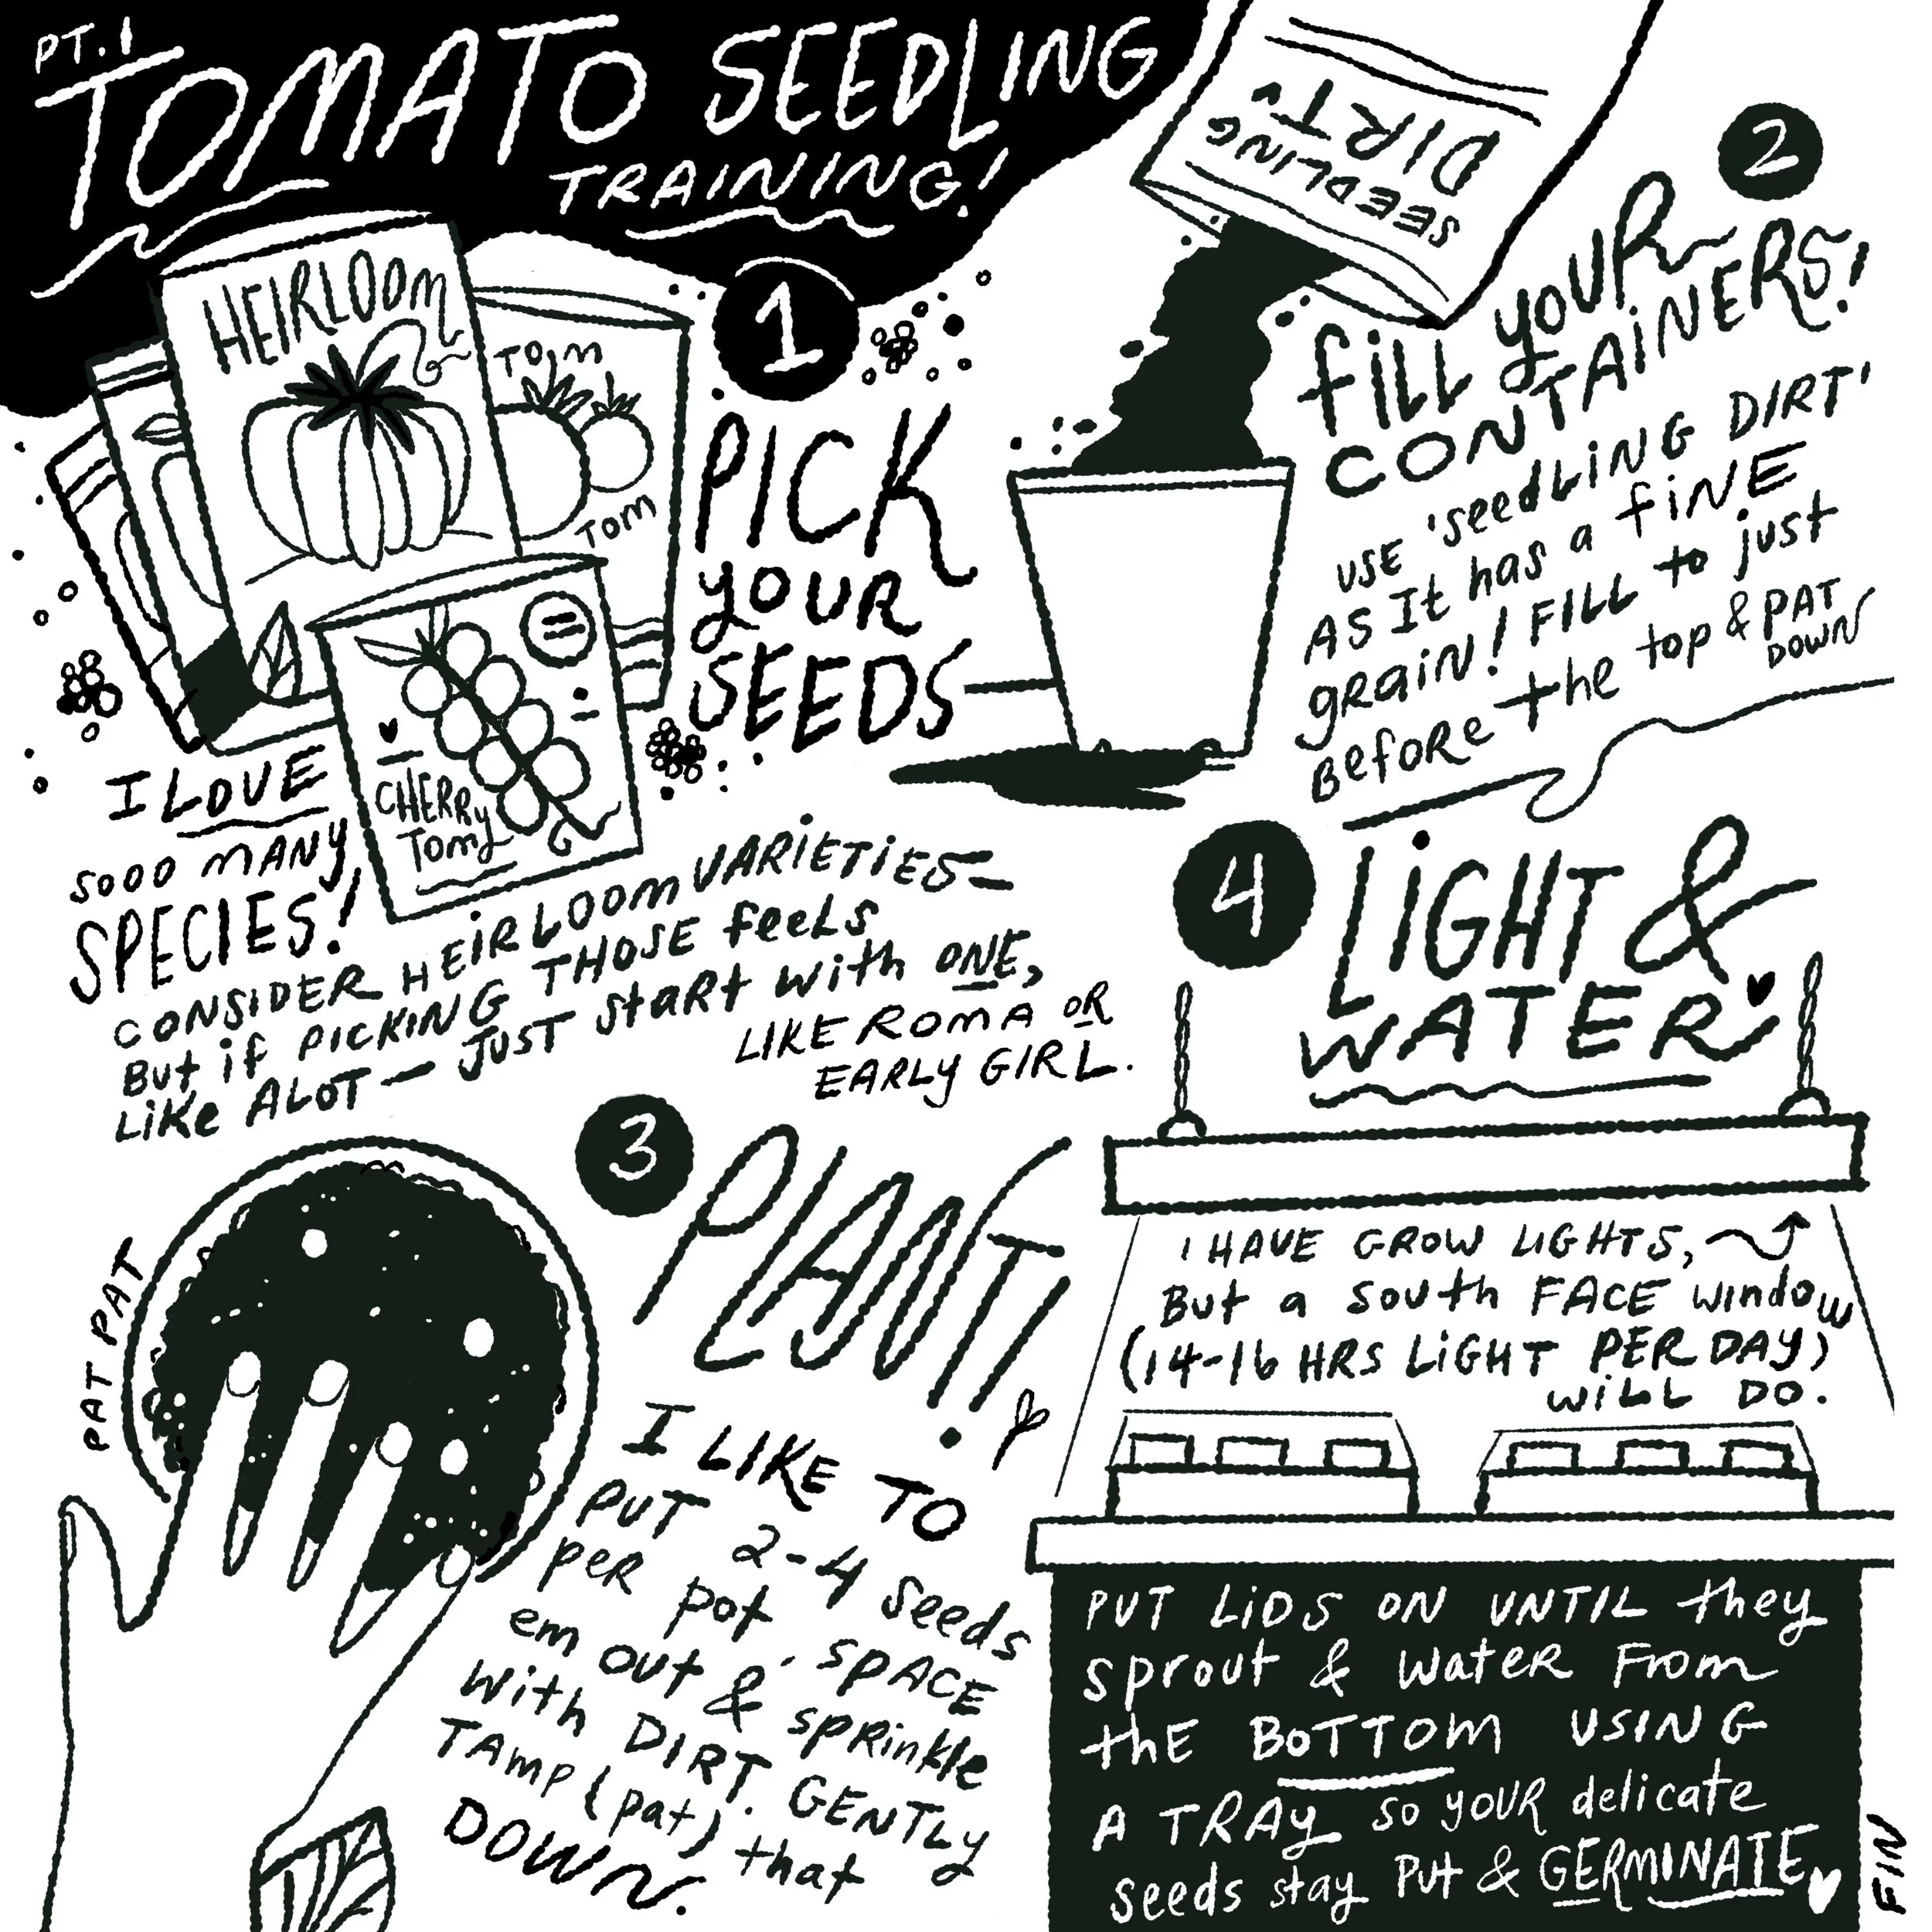 PT. 1
TOMATO SEEDLING
TRAINING!
HEIRLOOM
TOM
TOM
CHERRY
TOMS
1
PICK
YOUR
SEEDS
I LOVE
SOOO MANY
SPECIES!
CONSIDER HEIRLOOM VARIETIES—
BUT if PICKING THOSE feels
LiKe ALOT — JUST StARt With ONE,
LIKE ROMA OR
EARLY GIRL.
SEEDLING
DIRT
2
fill YOUR
CONTAINERS!
USE 'SeedLiNG DIRT'
AS It has a fiNE
gRain! FILL to just
Before the top & PAT
DOWN
3
PLANT!
PAT PAT
I LIKE TO
PUT 2-4 Seeds
per pot - SPACE
em out & sprinkle
With DIRT. GENTLY
TAMP (pat) that
DOWN.
4
LIGHT &
WATER
I HAVE GROW LIGHTS,
But a South FACE window
(14-16 HRS LiGHT PER DAY)
WiLL DO.
PUT LiDS ON UNTIL they
sprout & WateR FRom
the BOTTOM USING
A TRAY SO YOUR delicate
Seeds stay Put & GERMINATE
FIN